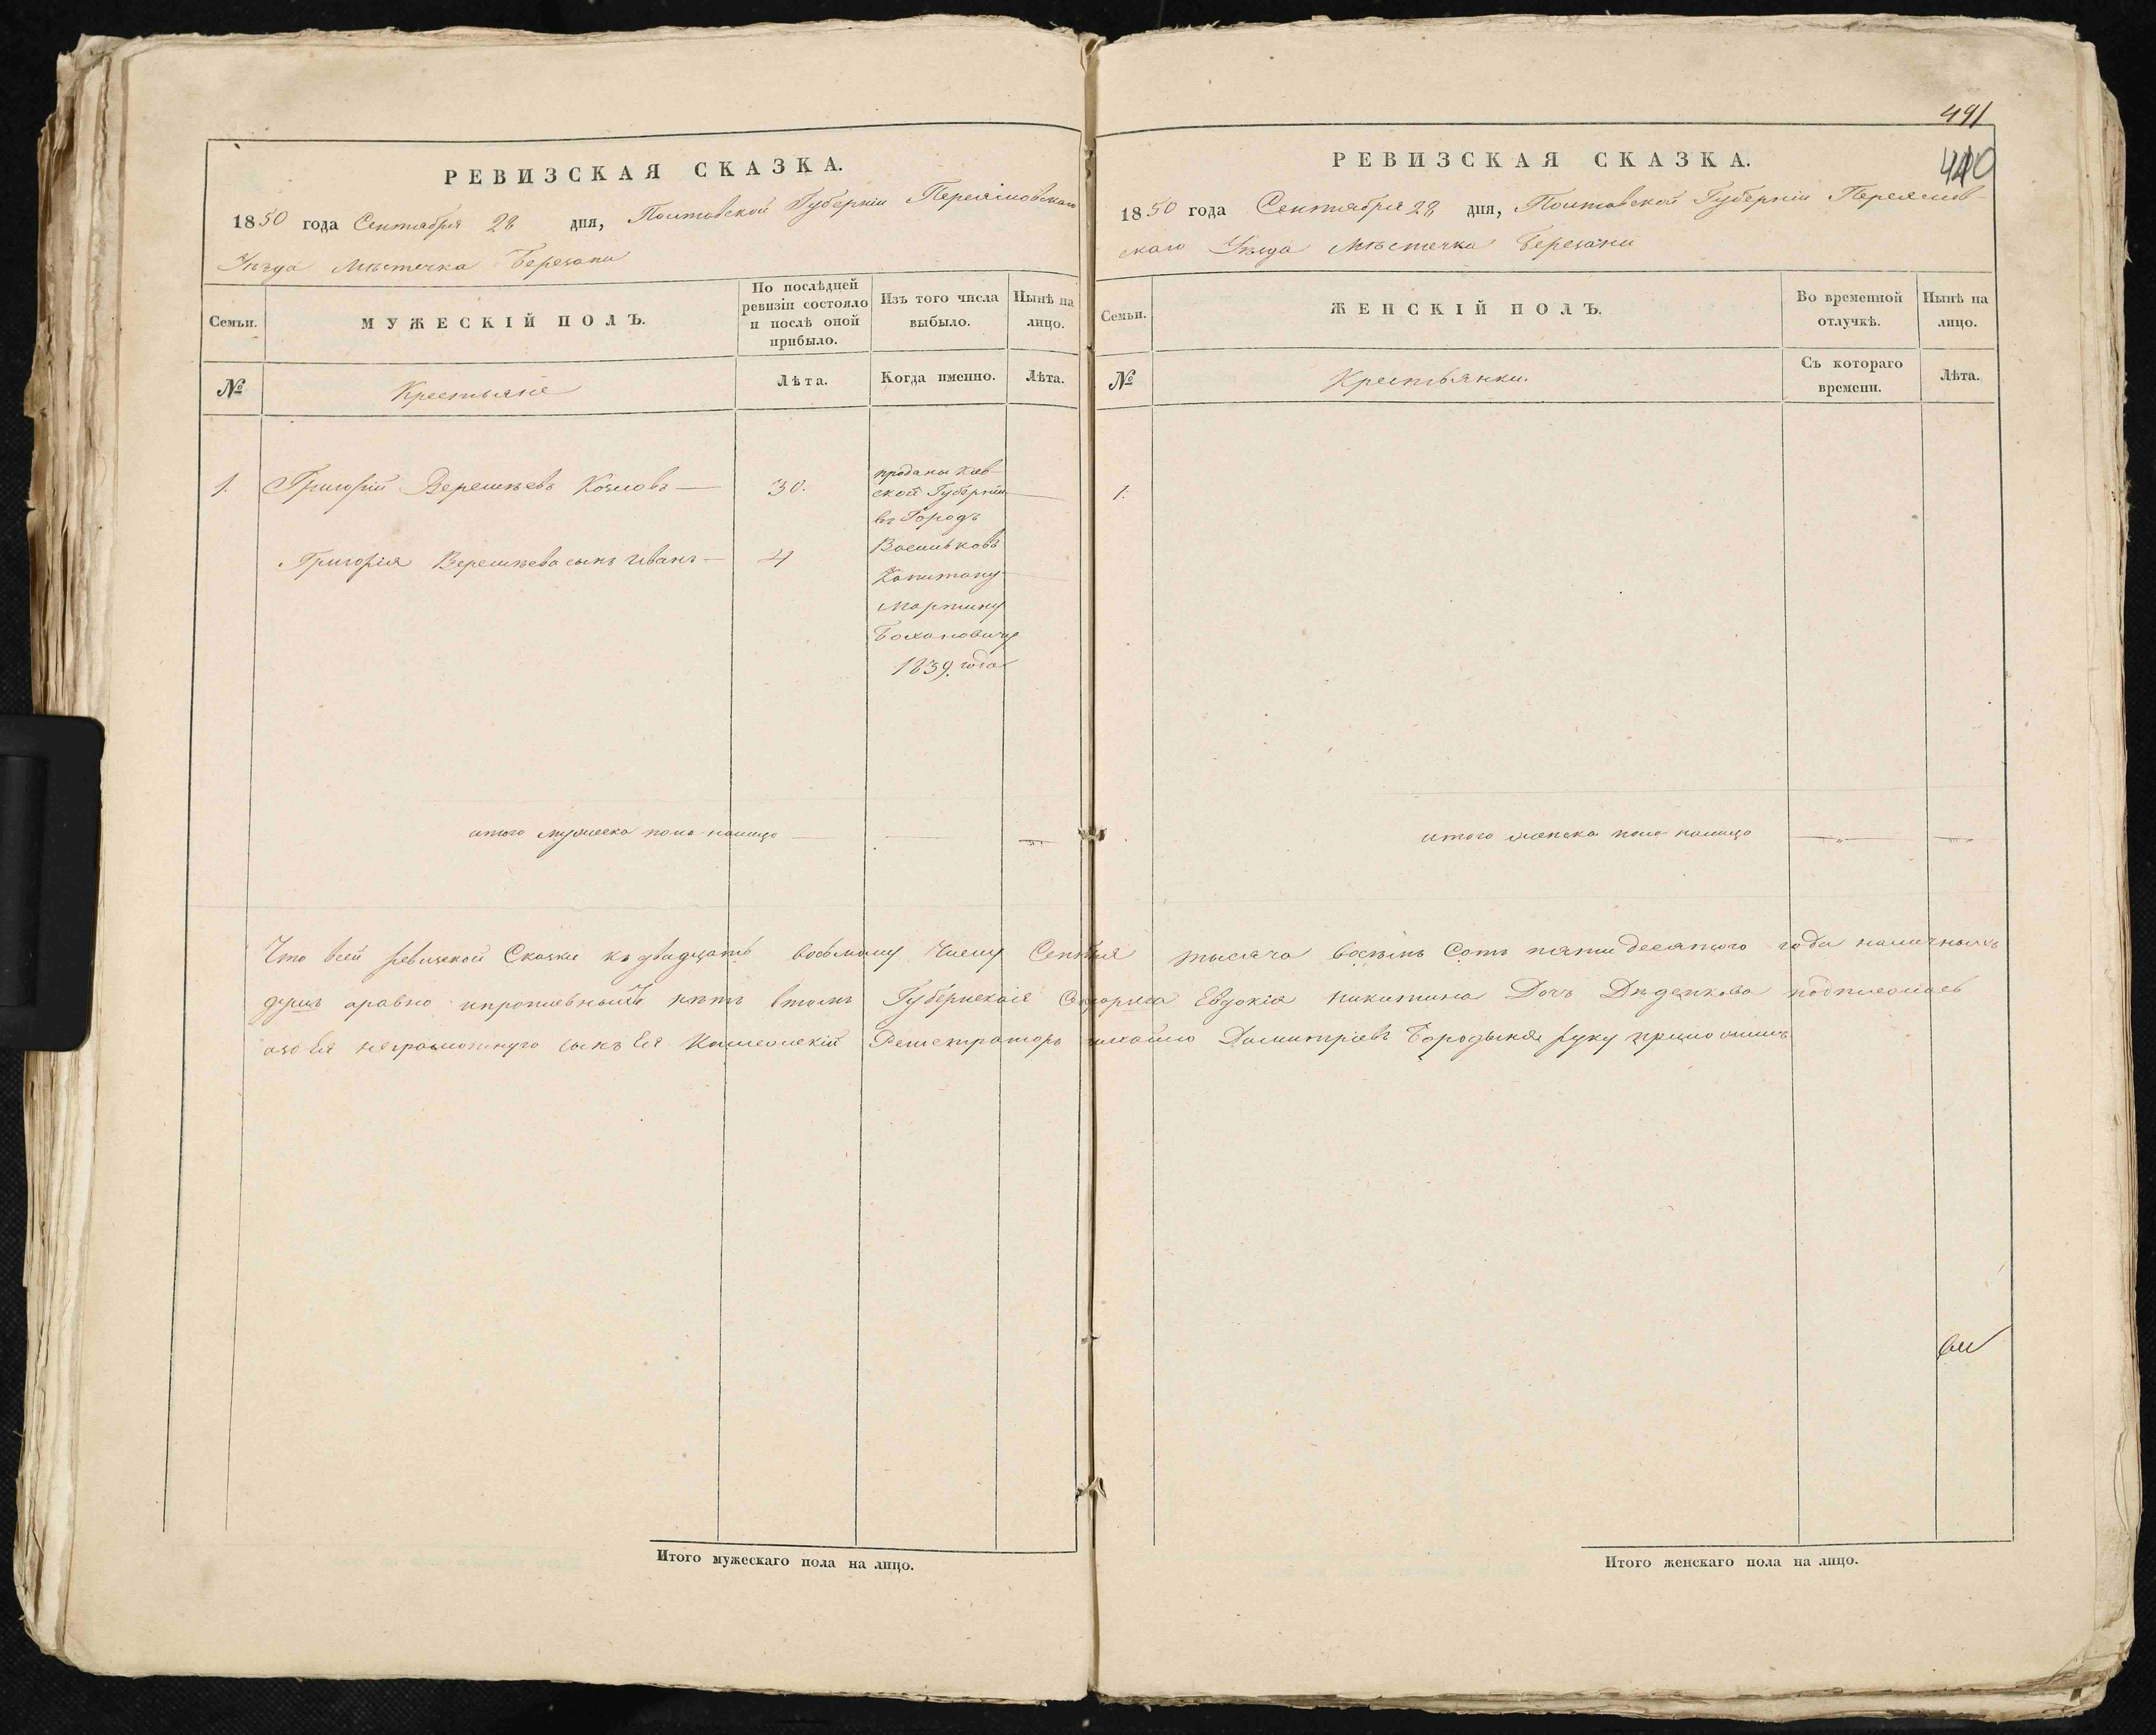 РЕВИЗСКАЯ СКАЗКА.
1850 года Сентября 28 дня, Полтавской Губернии Переясловскаго
Уѣзда Мѣстечка Березани
Семьи.
МУЖЕСКІЙ ПОЛЪ.
По послѣдней
ревизіи состояло
и послѣ оной
прибыло.
Изъ того числа
выбыло.
Нынѣ на
лицо.
№
Крестьяне
Лѣта.
Когда именно.
Лѣта.
1. Григорій Козловъ — 30.
Григорія сынъ Иванъ — 4
проданы Кіев-
ской Губерніи
въ Городъ
Васильковъ
Капитану
Мартину
1839. года
итого мужеска пола налицо
РЕВИЗСКАЯ СКАЗКА.
491
440
1850 года Сентября 28 дня, Полтавской Губерніи Переяслов-
скаго Уѣзда Мѣстечка Березани
Семьи.
ЖЕНСКІЙ ПОЛЪ.
Во временной
отлучкѣ.
Нынѣ на
лицо.
№
Крестьянки.
Съ котораго
времени.
Лѣта.
1.
итого женска пола налицо
Что всей ревизской Сказки къ двадцать восьмому Числу тысяча восемь Сотъ пятидесятого года наличныхъ
душъ аравно нѣтъ втомъ Губернская Евдокія никитина Дочъ подписалась
неграмотную сынъ Ея Регистраторъ Димитріевъ руку приложилъ
Итого мужескаго пола на лицо.
Итого женскаго пола на лицо.